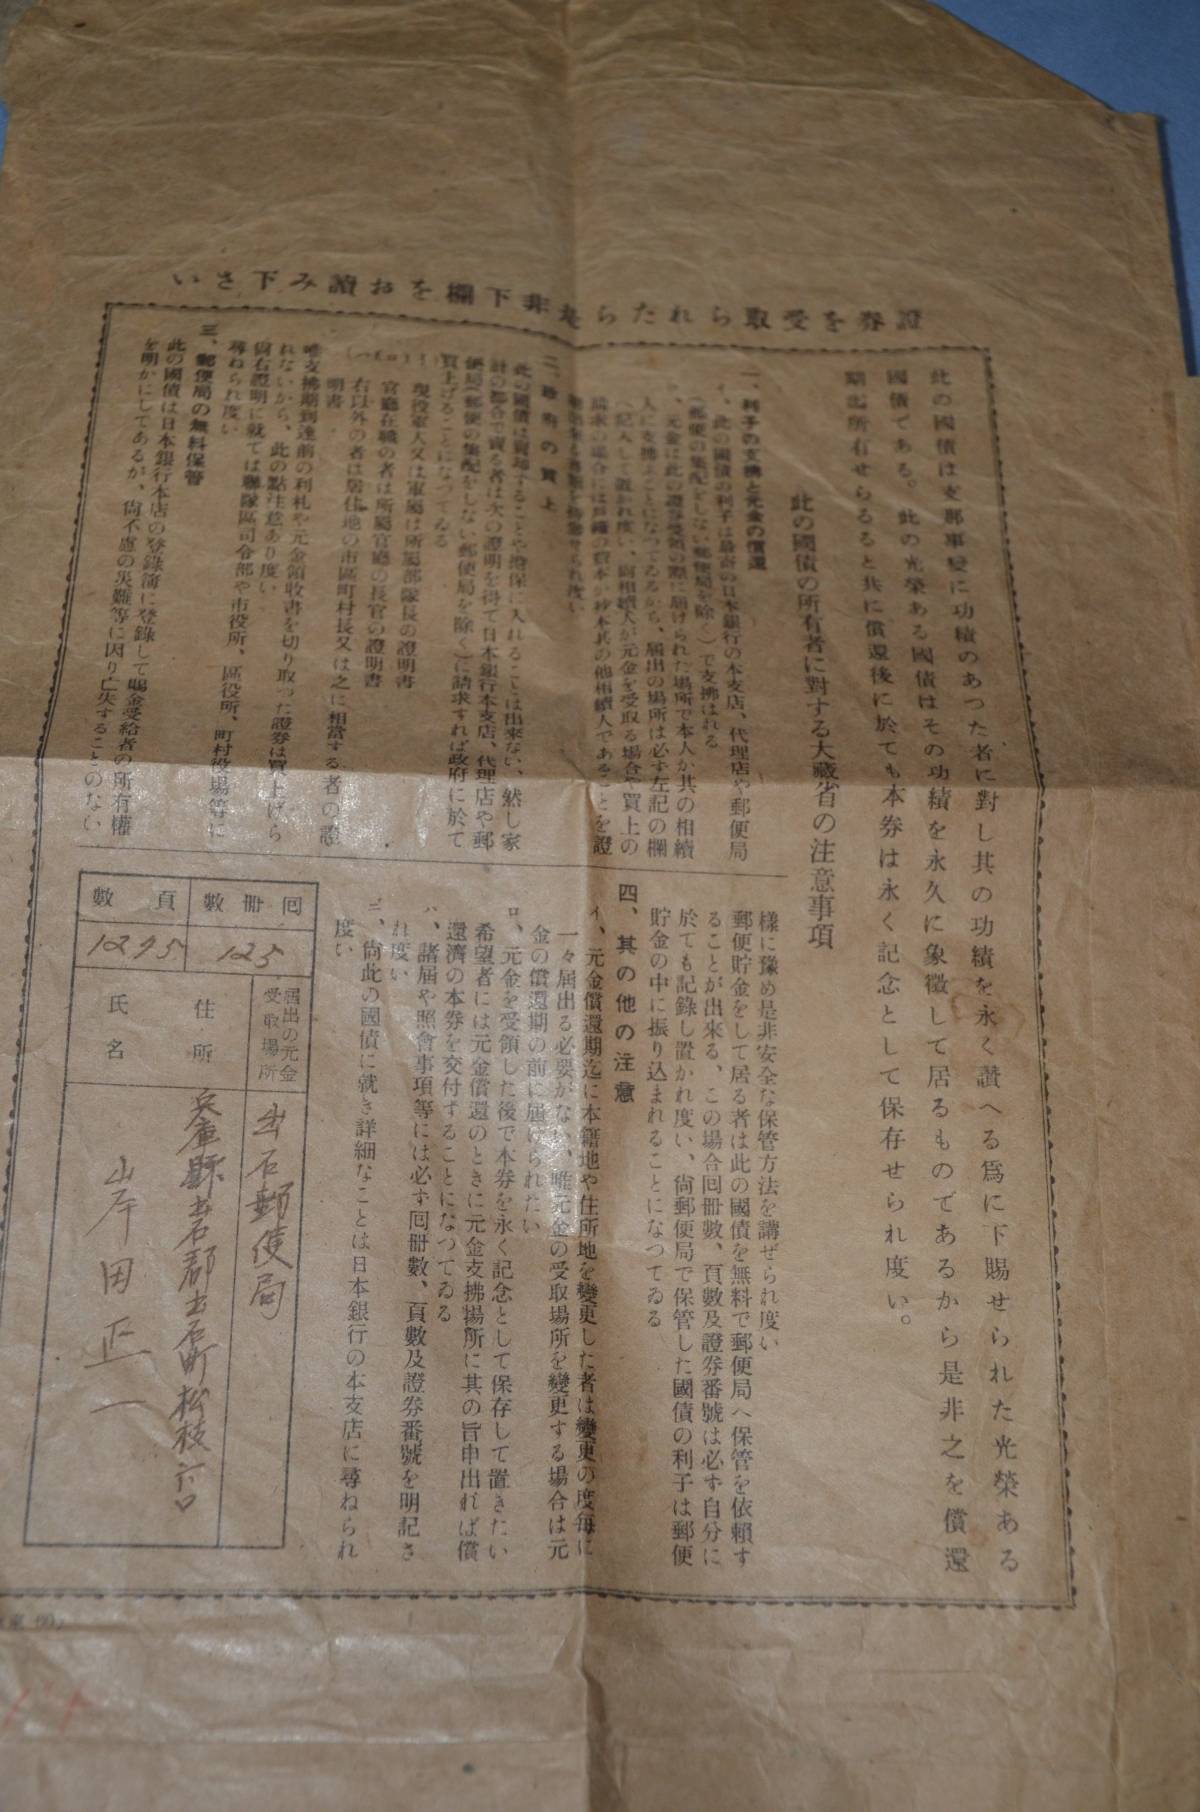 證券を受取られたら是非下欄をお讀み下さい
此の國債は支那事變に功績のあつた者に對し其の功績を永く讃へる爲に下賜せられた光榮ある
國債である。此の光榮ある國債はその功績を永久に象徴して居るものであるから是非之を償還
期迄所有せらるると共に償還後に於ても本券は永く記念として保存せられ度い。
此の國債の所有者に對する大藏省の注意事項
一、利子の支拂と元金の償還
イ、此の國債の利子は最寄の日本銀行の本支店、代理店や郵便局
(郵便の集配をしない郵便局を除く)で支拂はれる
ロ、元金は此の證券受領の際に届けられた場所で本人か其の相續
人に支拂ふことになつてゐるから、届出の場所は必ず左記の欄
へ記入して置かれ度い、尚相續人が元金を受取る場合や買上の
請求の場合には戸籍の謄本か抄本其の他相續人であることを證
二、政府の買上
此の國債は賣買することや擔保に入れることは出來ない、然し家
計の都合で賣る者は次の證明を得て日本銀行本支店、代理店や郵
便局(郵便の集配をしない郵便局を除く)に請求すれば政府に於て
買上げることになつてゐる
現役軍人又は軍屬は所屬部隊長の證明書
官廳在職の者は所屬官廳の長官の證明書
右以外の者は居住地の市區町村長又は之に相當する者の證
明書
唯支拂期到達前の利札や元金領收書を切り取つた證券は買上げら
れないから、此の點注意あり度い
尚右證明に就ては聯隊區司令部や市役所、區役所、町村役場等に
尋ねられ度い
三、郵便局の無料保管
此の國債は日本銀行本店の登錄簿に登錄して賜金受給者の所有權
を明かにしてあるが、尚不慮の災難等に因り亡失することのない
樣に豫め是非安全な保管方法を講ぜられ度い
郵便貯金をして居る者は此の國債を無料で郵便局へ保管を依賴す
ることが出來る、この場合回冊數、頁數及證券番號は必ず自分に
於ても記錄し置かれ度い、尚郵便局で保管した國債の利子は郵便
貯金の中に振り込まれることになつてゐる
四、其の他の注意
イ、元金償還期迄に本籍地や住所地を變更した者は變更の度每に
一々届出る必要がない、唯元金の受取場所を變更する場合は元
金の償還期の前に届けられたい
ロ、元金を受領した後で本券を永く記念として保存して置きたい
希望者には元金償還のときに元金支拂場所に其の旨申出れば償
還濟の本券を交付することになつてゐる
ハ、諸届や照會事項等には必ず回冊數、頁數及證券番號を明記さ
れ度い
ニ、尚此の國債に就き詳細なことは日本銀行の本支店に尋ねられ
度い
回冊數
125
頁數
1275
届出の元金
受取場所
出石郵便局
住所
兵庫縣出石郡出石町松枝
氏名
岸田正一